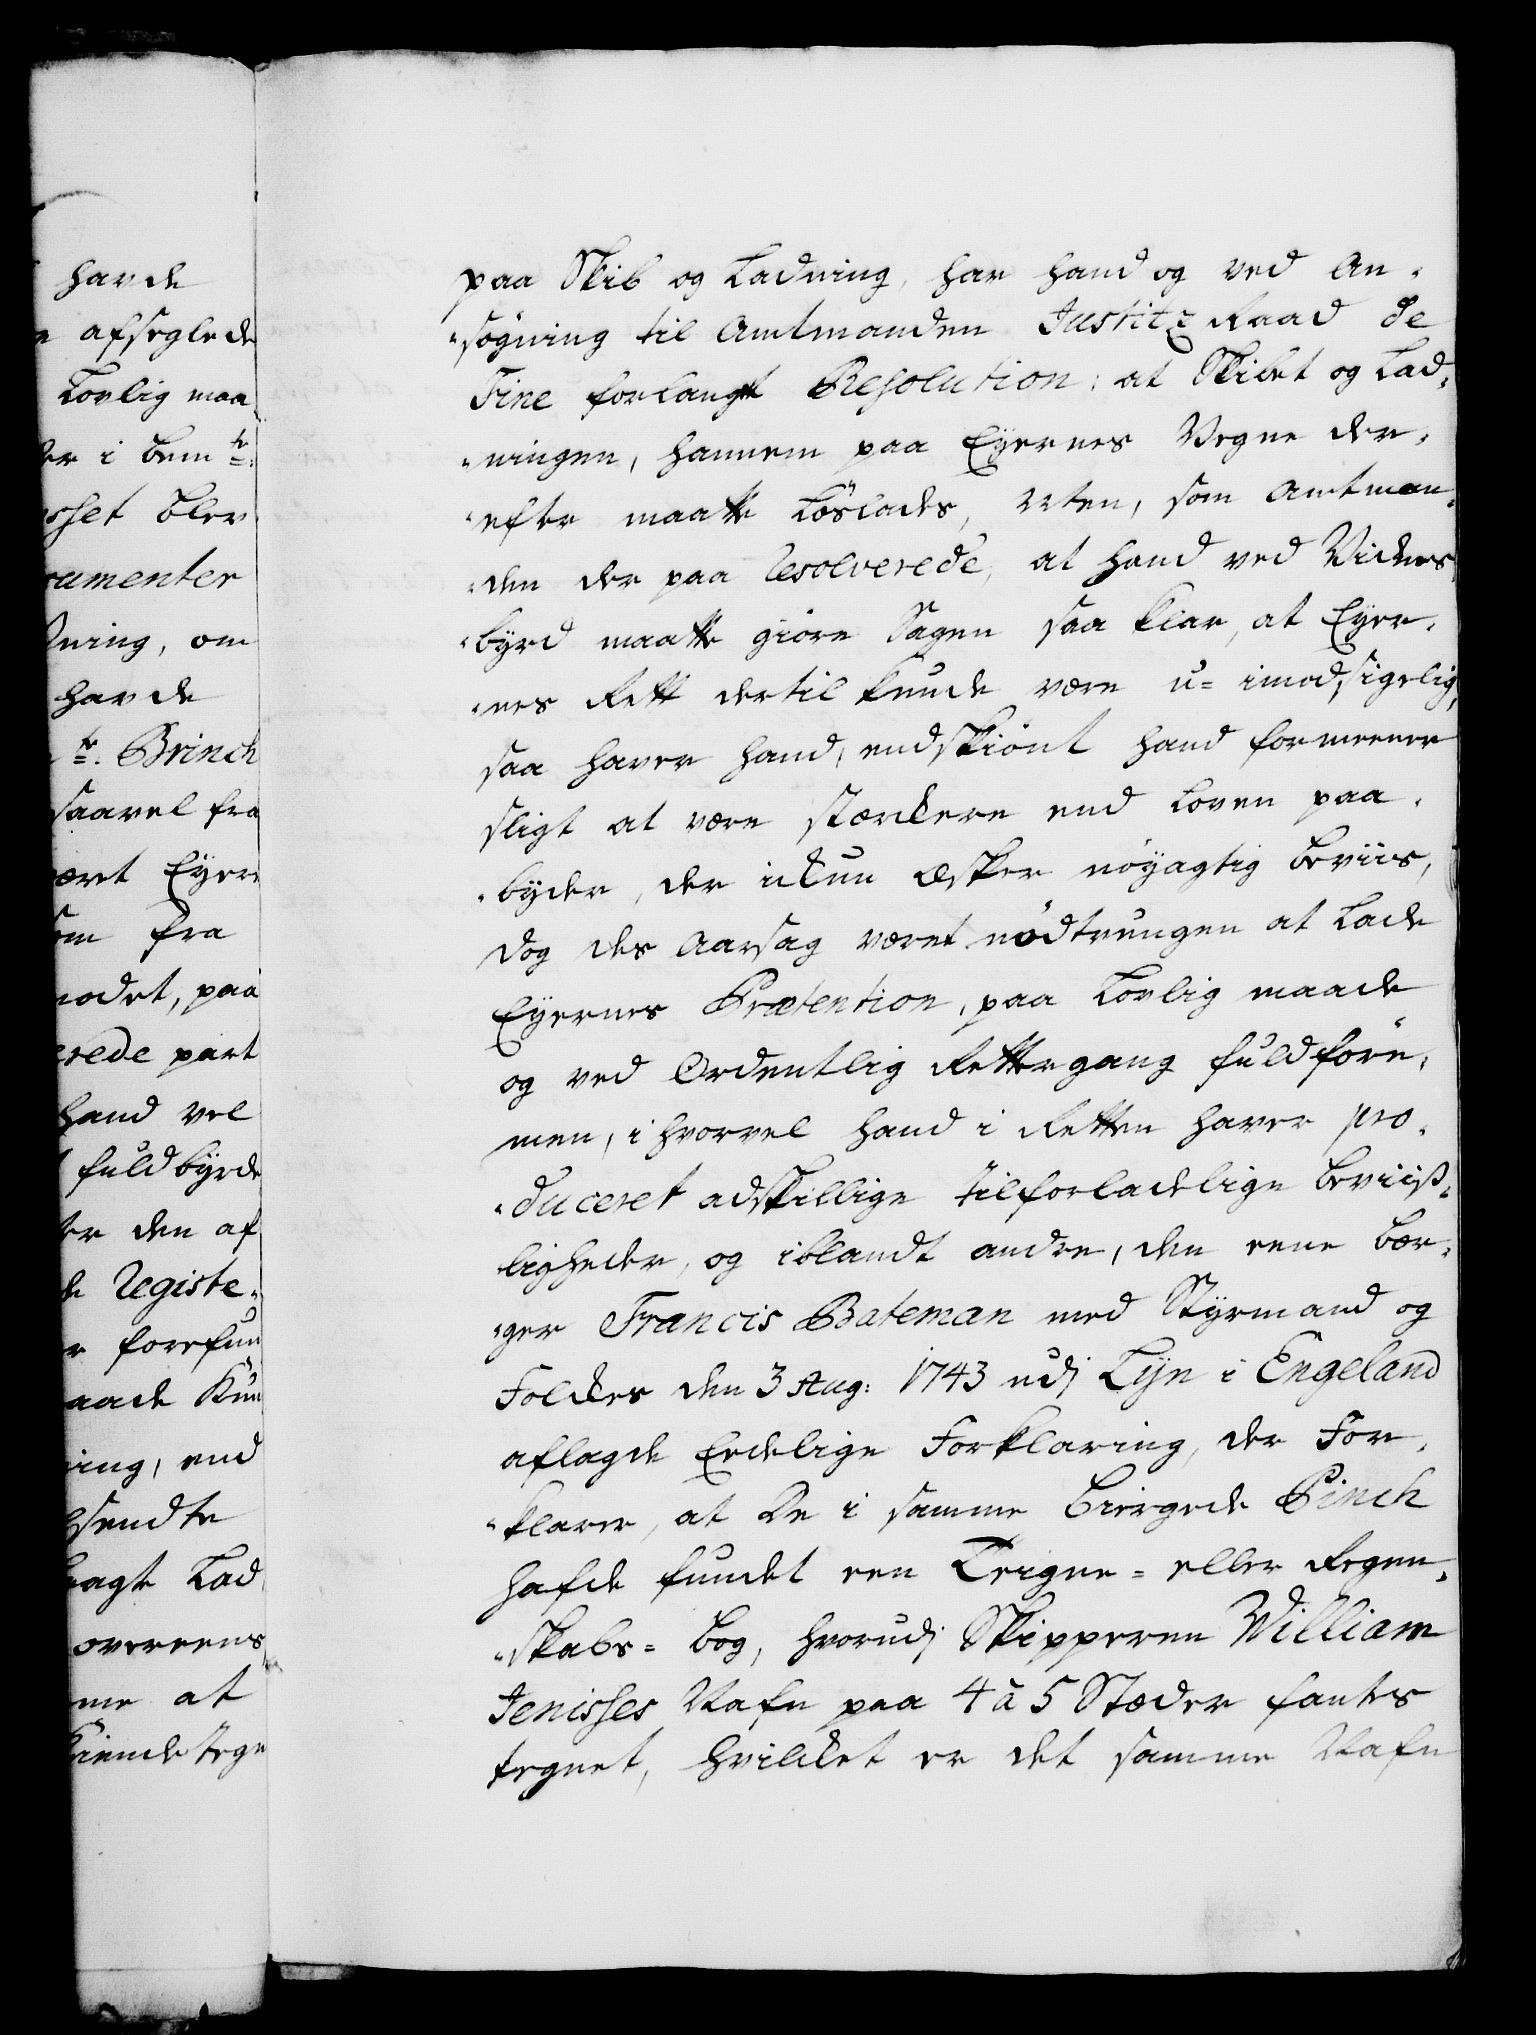 havde
afseglede
Lovlig maa
er i bem.te
sset blev
cumenter
ning, om
havde
te. Brinch
saavel fra
æret Eyer
om fra
odet, paa
erede part
hand vel
fuldbyrde
er den af
de Registe-
r forefun
aade Kun
ing, end
sendte
agte Lad
overeens
me at
Kiendetegn
paa Skib og Ladning, har hand og ved An-
-søgning til Amtmanden Justitz Raad de
Fine forlangt Resolution: at Skibet og Lad-
-ningen, hannem paa Eyernes Vegne der-
-efter maatte Løslades, Men, som Amtman-
-den der paa Resolverede, at hand ved Vidnes
-byrd maatte giøre Sagen saa klar, at Eyer-
-nes Rett dertil kunde være u-imodsigelig,
saa haver hand, endskiønt hand formeener
sligt at være stærkere end Loven paa-
-byder, der ickun æsker nøyagtig Beviis,
dog des Aarsag været nødtrungen at Lade
Eyernes Prætention, paa Lovlig maade
og ved Ordentlig Rettergang fuldføre,
men, i hvorvel hand i Retten haver pro-
-duceret adskillige tilforladelige Beviiß-
ligheder, og iblandt andre, den eene Bær-
-ger Francis Bateman med Styrmand og
Folckes den 3 Aug: 1743 udj Lyn i Engeland
aflagde Eedelige Forklaring, der For-
-klarer, at De i samme Biergede Pinch
hafde fundet een Teigne- eller Regen-
-skabs-Bog, hvorudj Skipperen William
Jenisses Nafn paa 4 a 5 Stæder fantes
tegnet, hvilcket er det samme Nafn